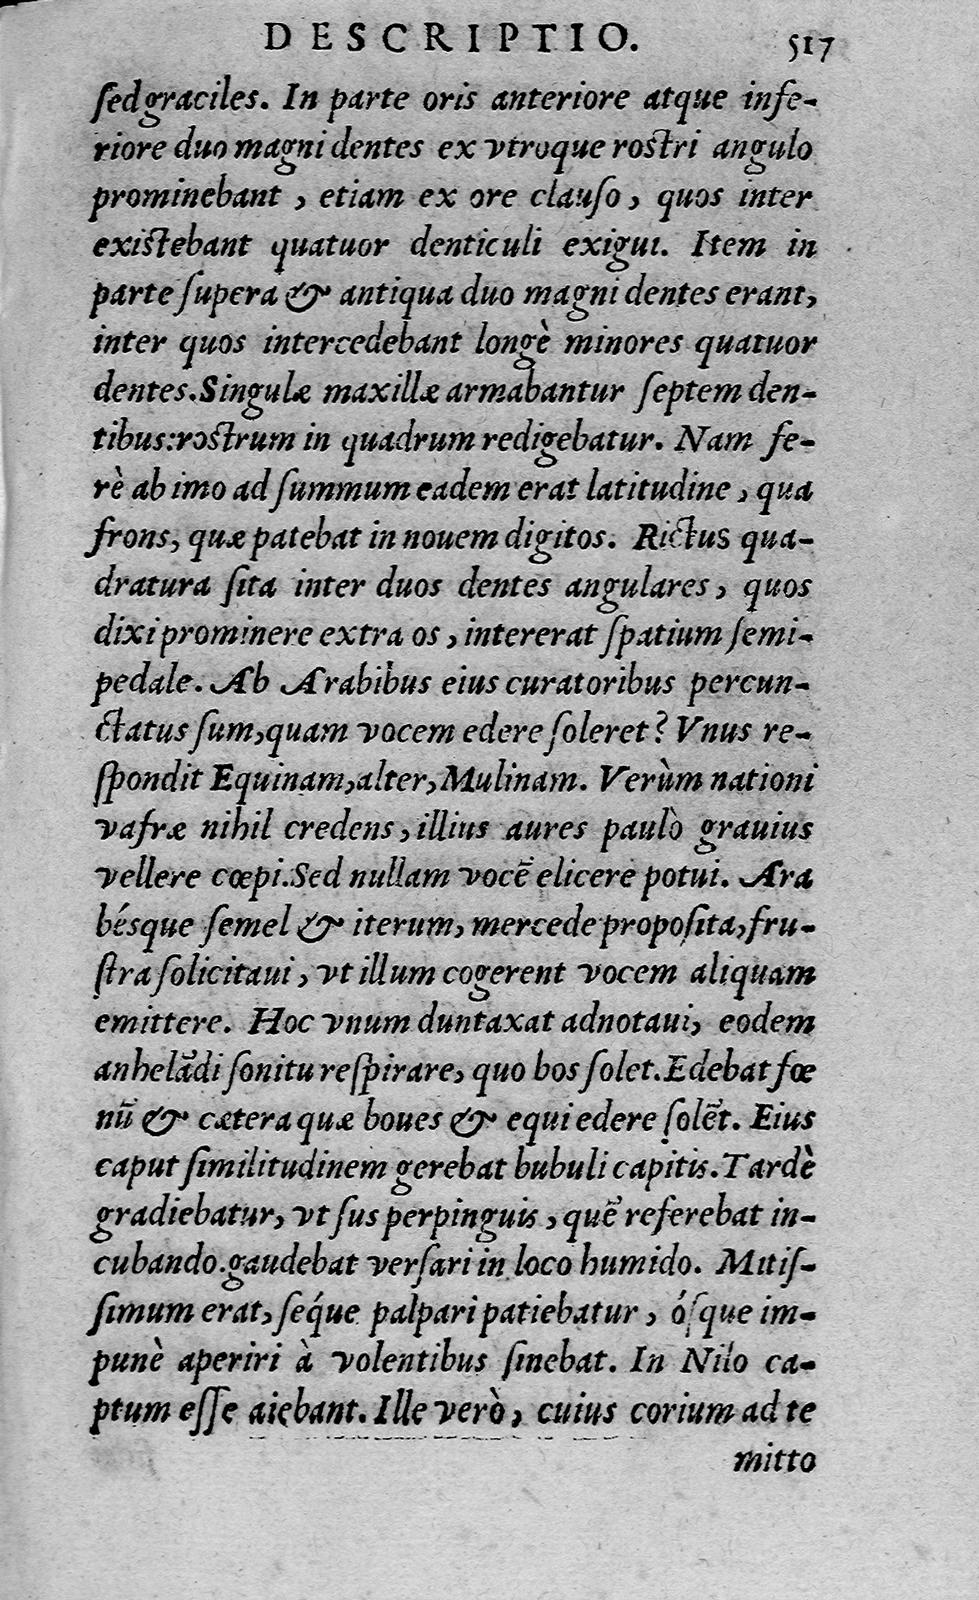 DESCRIPTIO. 517
ſed graciles. In parte oris anteriore atque infe-
riore duo magni dentes ex vtroque roſtri angulo
prominebant, etiam ex ore clauſo, quos inter
exiſtebant quatuor denticuli exigui. Item in
parte ſupera & antiqua duo magni dentes erant,
inter quos intercedebant longè minores quatuor
dentes. Singulæ maxillæ armabantur ſeptem den-
tibus: roſtrum in quadrum redigebatur. Nam fe-
rè ab imo ad ſummum eadem erat latitudine, qua
frons, quæ patebat in nouem digitos. Rictus qua-
dratura ſita inter duos dentes angulares, quos
dixi prominere extra os, intererat ſpatium ſemi-
pedale. Ab Arabibus eius curatoribus percun-
ctatus ſum, quam vocem edere ſoleret? Vnus re-
ſpondit Equinam, alter, Mulinam. Verùm nationi
vafræ nihil credens, illius aures paulò grauius
vellere cœpi. Sed nullam vocē elicere potui. Ara
bésque ſemel & iterum, mercede propoſita, fru-
ſtra ſolicitaui, vt illum cogerent vocem aliquam
emittere. Hoc vnum duntaxat adnotaui, eodem
anhelādi ſonitu reſpirare, quo bos ſolet. Edebat fœ
nū & cætera quæ boues & equi edere ſolēt. Eius
caput ſimilitudinem gerebat bubuli capitis. Tardè
gradiebatur, vt ſus perpinguis, quē referebat in-
cubando. gaudebat verſari in loco humido. Mitiſ-
ſimum erat, ſeque palpari patiebatur, óſque im-
punè aperiri à volentibus ſinebat. In Nilo ca-
ptum eſſe aiebant. Ille verò, cuius corium ad te
mitto